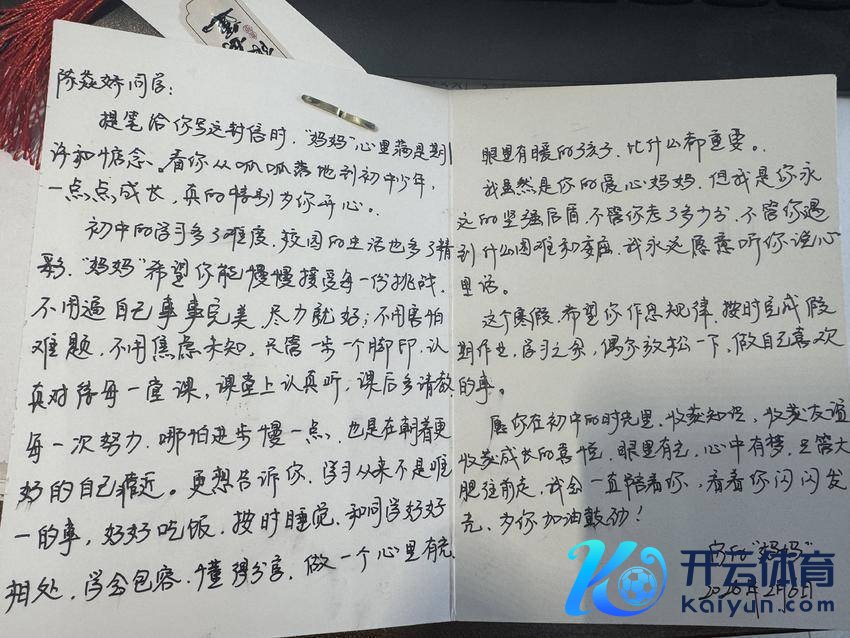 陈焱娇同学：
提笔给你写这封信时，“妈妈”心里满是期
许和惦念。看你从呱呱落地到初中少年，
一点点成长，真的特别为你开心。
初中的学习多了难度，校园的生活也多了精
彩，“妈妈”希望你能慢慢接受每一份挑战，
不用逼自己事事完美，尽力就好；不用害怕
难题，不用焦虑未知，只需一步一个脚印，认
真对待每一堂课，课堂上认真听，课后多请教
每一次努力，哪怕进步慢一点，也是在朝着更
好的自己靠近。更想告诉你，学习从来不是唯
一的事，好好吃饭，按时睡觉，和同学好好
相处，学会包容，懂得分享，做一个心里有光
眼里有暖的孩子，比什么都重要。
我虽然是你的爱心妈妈，但我是你永
远的坚强后盾，不管你走了多少步，不管你遇
到什么困难和委屈，我永远愿意听你说心
里话。
这个寒假，希望你作息规律，按时完成假
期作业，学习之余，偶尔放松一下，做自己喜欢
的事。
愿你在初中的时光里，收获知识，收获友谊
收获成长的喜悦，眼里有光，心中有梦，只管大
胆往前走，我会一直陪着你，看着你闪闪发
光，为你加油鼓劲！
“妈妈”
2026年2月6日
开云体育
kaiyun.com